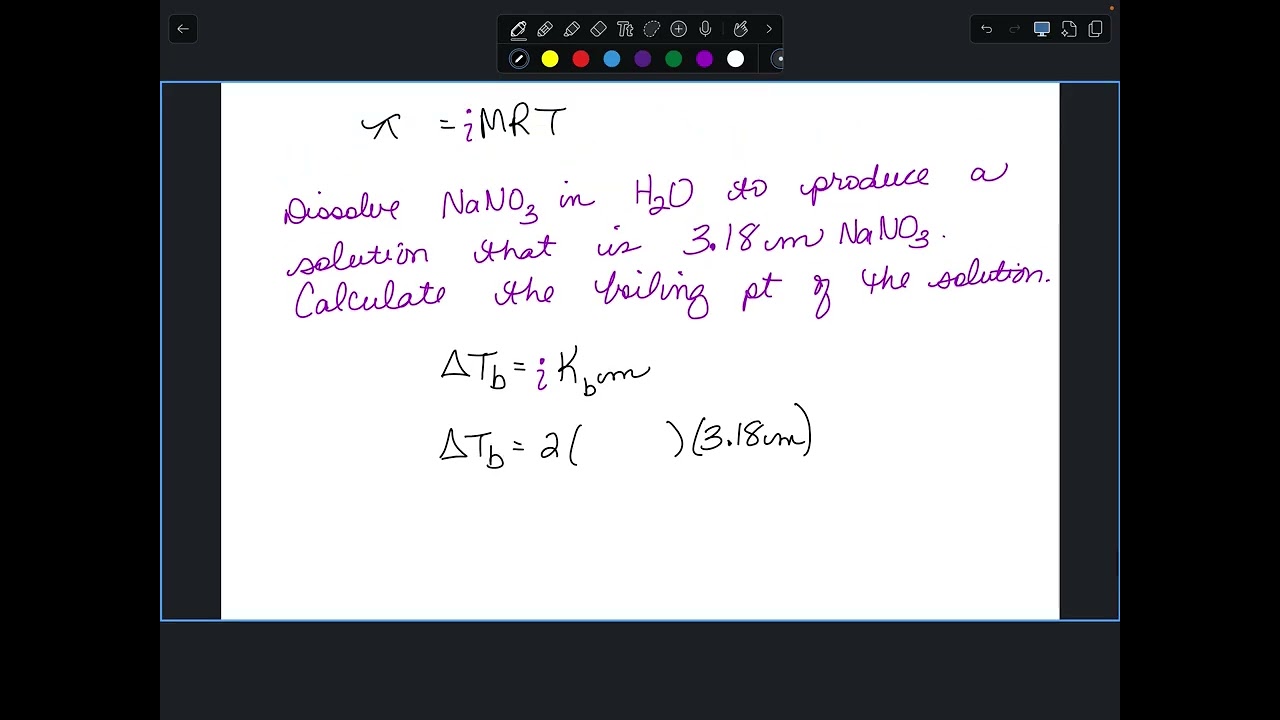 Tt
π = iMRT
Dissolve NaNO₃ in H₂O to produce a
solution that is 3.18 m NaNO₃.
Calculate the boiling pt of the solution.
ΔT_b = i K_b m
ΔT_b = 2 ( ) (3.18 m)